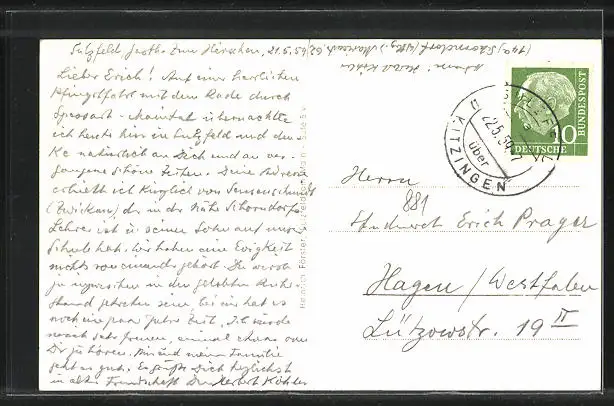 Sulzfeld, Gasth. zum Hirschen, 21.5.54
Lieber Erich! Auf einer herrlichen
Pfingstfahrt mit dem Rade durch
Spessart - Maintal übernachtete
ich heute hier in Sulzfeld und den-
ke natürlich an Dich und an ver-
gangene schöne Zeiten. Deine Adresse
erhielt ich kürzlich von
(Zwickau), der in der Nähe Schorndorfs
Lehrer ist u. seinen Sohn auf
Schule hat. Wir haben eine Ewigkeit
nichts voneinander gehört. Du wirst
ja inzwischen in den
stand getreten sein, bei mir hat es
noch ein paar Jahre Zeit. Ich würde
mich sehr freuen, einmal etwas von
Dir zu hören. Mir und meiner Familie
geht es gut. Es grüßt Dich herzlichst
in alter Freundschaft Dein Herbert Köhler
Absender: Herbert Köhler
(14a) Schorndorf (Wttbg.)
Heinrich Förster, Sulzfeld am Main
KITZINGEN
über
22.5.54
10
DEUTSCHE
BUNDESPOST
Herrn
881
Studienrat Erich Prager
Hagen / Westfalen
Lützowstr. 19 II